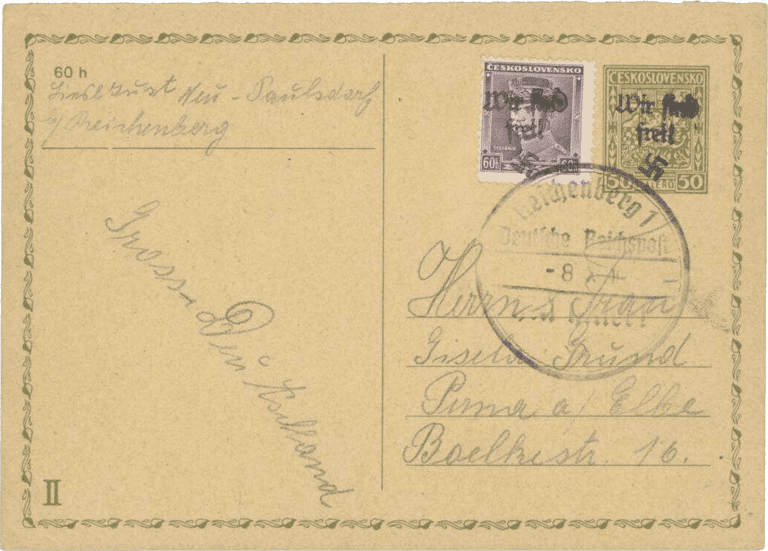 60 h
Neu - Paulsdorf
b/ Reichenberg
ČESKOSLOVENSKO
Wir sind
frei!
60h 60h
ČESKOSLOVENSKO
Wir sind
frei!
50 HALÉŘŮ 50
Reichenberg 1
Deutsche Reichspost
- 8
Herrn & Frau
Gisela Grund
Pirna a/ Elbe
Boelkestr. 16.
Gross - Deutschland
II